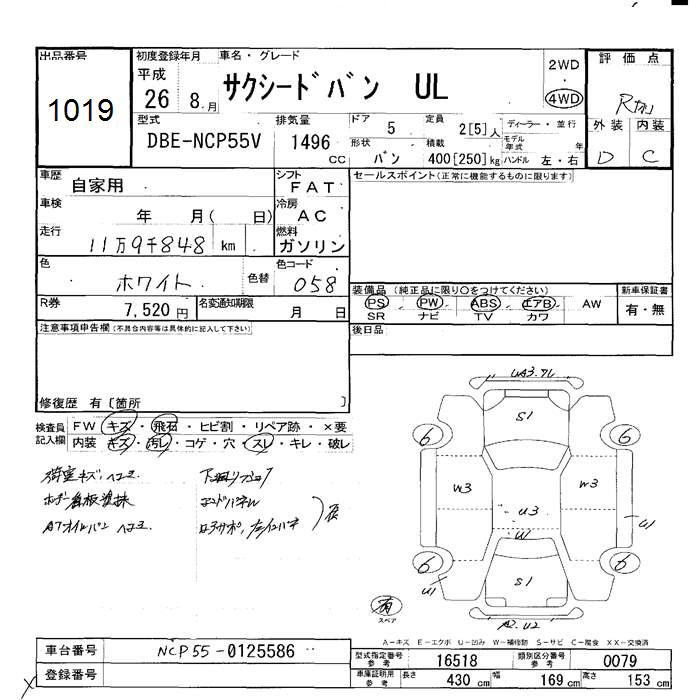 出品番号
1019
初度登録年月
平成
26 8 月
車名・グレード
サクシードバン UL
2WD
4WD
評価点
型式
DBE-NCP55V
排気量
1496 CC
ドア
5
定員
2[5] 人
ディーラー・並行
形状
バン
積載
400[250] kg
モデル年式 年
ハンドル 左・右
外装 内装
D C
車歴
自家用
シフト
FAT
セールスポイント(正常に機能するものに限ります)
車検
年 月( 日)
冷房
AC
走行
11万9千848 km
燃料
ガソリン
色
ホワイト
色替
色コード
058
装備品 (純正品に限り○をつけてください)
新車保証書
PS PW ABS エアB AW
SR ナビ TV カワ
有・無
R券
7,520 円
名変通知期限
月 日
後日品
注意事項申告欄(不具合内容等は具体的に記入して下さい)
修復歴 有[箇所 ]
検査員記入欄
FW キズ・飛石・ヒビ割・リペア跡・×要
内装 キズ・汚レ・コゲ・穴・スレ・キレ・破レ
荷室キズ、ヘコミ
ATオイルパン ヘコミ
エンドパネル
S1
6 6
W3 U3 W3
W
U1
6 6
U1
S1
有
スペア
A2.U2
A-キズ E-エクボ U-凹み W-補修跡 S-サビ C-腐食 XX-交換済
車台番号
NCP55-0125586
登録番号
型式指定番号 参考
16518
類別区分番号 参考
0079
車庫証明用 参考
長さ 430 cm 幅 169 cm 高さ 153 cm